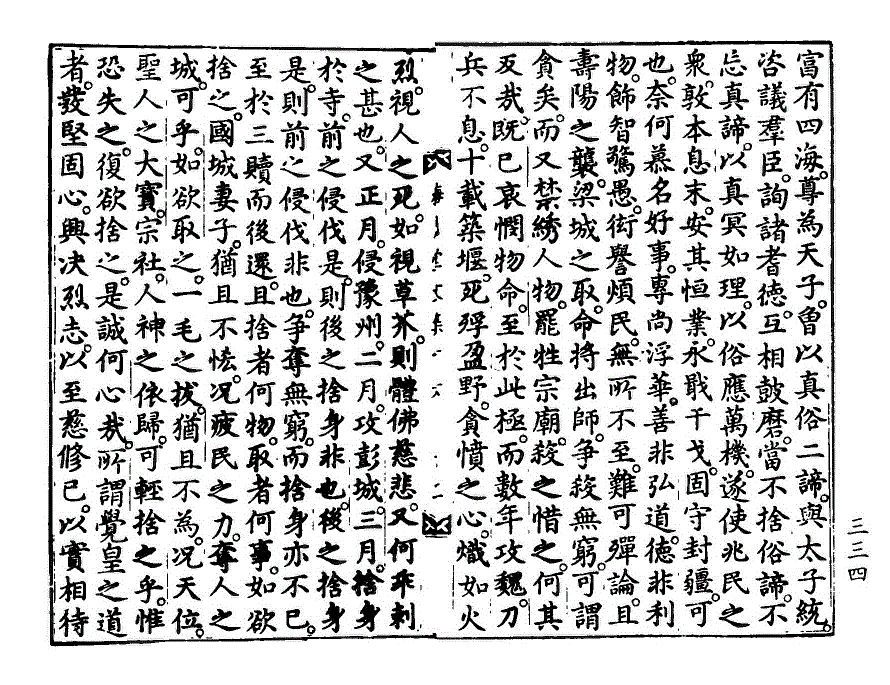 富有四海。尊為天子。曾以真俗二諦。與太子統。
咨議羣臣。詢諸耆德。互相皷磨。當不捨俗諦。不
忘真諦。以真冥如理。以俗應萬機。遂使兆民之
衆。敦本息末。安其恒業。永戢干戈。固守封疆。可
也。奈何慕名好事。專尚浮華。善非弘道。德非利
物。飾智驚愚。衒譽煩民。無所不至。難可殫論。且
壽陽之襲。梁城之取。命將出師。爭殺無窮。可謂
貪矣。而又禁綉人物。罷牲宗廟。殺之惜之。何其
反哉。既已哀憫物命。至於此極。而數年攻魏。刀
兵不息。十載築堰。死殍盈野。貪憤之心。熾如火
烈。視人之死。如視草芥。則體佛慈悲。又何乖剌
之甚也。又正月。侵豫州。二月。攻彭城。三月。捨身
於寺。前之侵伐是。則後之捨身非也。後之捨身
是。則前之侵伐非也。爭奪無窮。而捨身亦不已。
至於三贖而後還。且捨者何物。取者何事。如欲
捨之。國城妻子。猶且不悋。况疲民之力。奪人之
城。可乎。如欲取之。一毛之拔。猶且不為。况天位。
聖人之大寶。宗社。人神之依歸。可輕捨之乎。惟
恐失之。復欲捨之。是誠何心哉。所謂覺皇之道
者。發堅固心。興决烈志。以至慈修己。以實相待
三三四